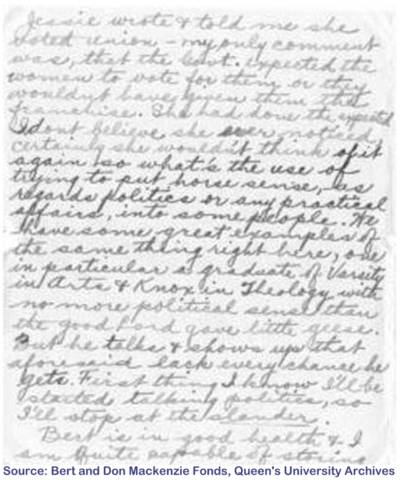 Jessie wrote & told me she
voted union - my only comment
was, that the Govt. expected the
women to vote for them or they
wouldnt have given them the
franchise. She had done the expected
I dont believe she ever noticed
certainly she wouldn't think of it
again so what's the use of
trying to put horse sense, as
regards politics or any practical
affairs, into some people. We
have some great examples of
the same thing right here, one
in particular a graduate of Varsity
in Arts & Knox in Theology with
no more political sense than
the good Lord gave little geese.
But he talks & shows up that
aforesaid lack every chance he
gets. First thing I know I'll be
started talking politics, so
I'll stop at the slander.
Bert is in good health & I
am quite capable of
Source: Bert and Don Mackenzie Fonds, Queen's University Archives